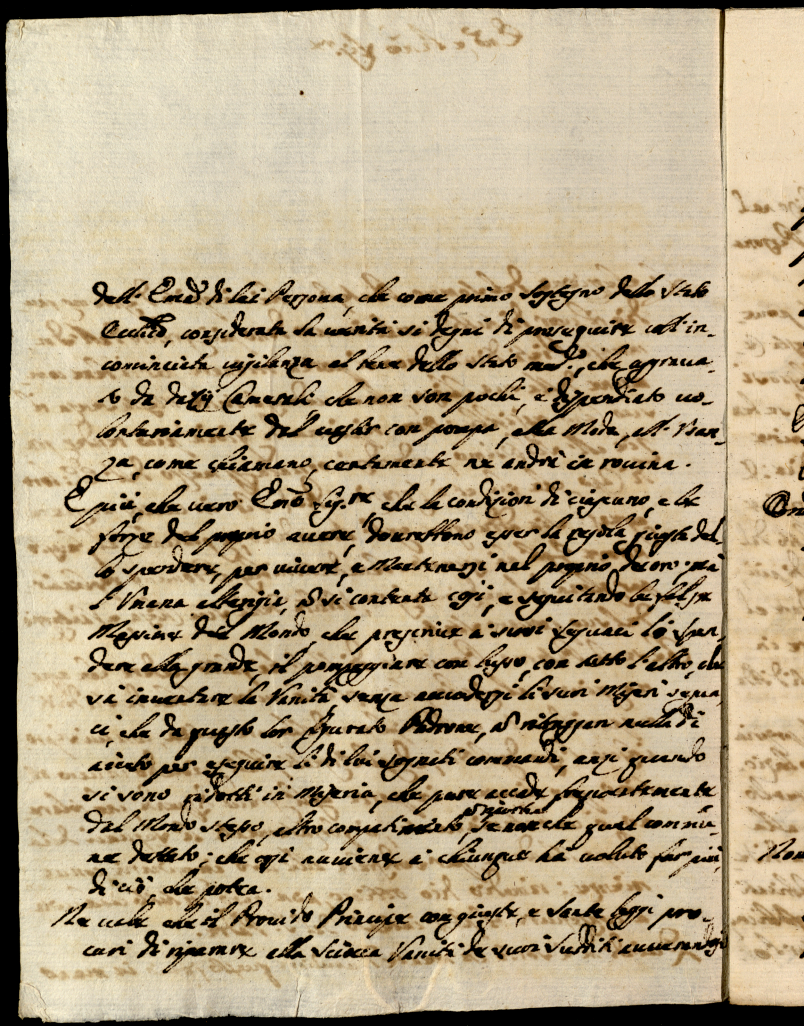 dell' Em.a di lei Persona, che come primo sostegno dello Stato
Eccl.co, considerata la verità si degni di proseguire coll' in-
cominciata vigilanza al bene dello Stato med.o, che aggrava-
to da dazij Camerali che non son pochi, e dispendiato vo-
lontariamente dal con pompa, alla Moda, all' Usan-
za, come chiamano, certamente ne andrà in rovina.
E più, che vero Em.o Sig.re, che la condizioni di ciascuno, e le
forze del proprio avere, dovrebbono esser la regola giusta del-
lo spendere, per vivere, e mantenersi nel proprio decoro: mà
l' Umana alterigia, nò si contenta così, e seguitando le false
Massime del Mondo, che prescrive a' suoi seguaci lo spen-
dere alla grande, il pompeggiare con lusso, con tutto l' altro, che
sà inventare la Vanità, senza avvedersi li suoi Miseri segua-
ci, che da questo lor Padrone, nò ritraggon nulla di
aiuto per eseguire li di lui sognati commandi, anzi quando
si sono ridotti in Miseria, che pure accade frequentemente
dal Mondo stesso, altro compatimento, nò che qual commu-
ne dettato; che così avviene à chiunque hà voluto far più,
di ciò che potea.
Ne vale che il Provido Principe con giuste, e sante leggi pro-
curi di riparare alla sciocca Vanità de suoi Sudditi